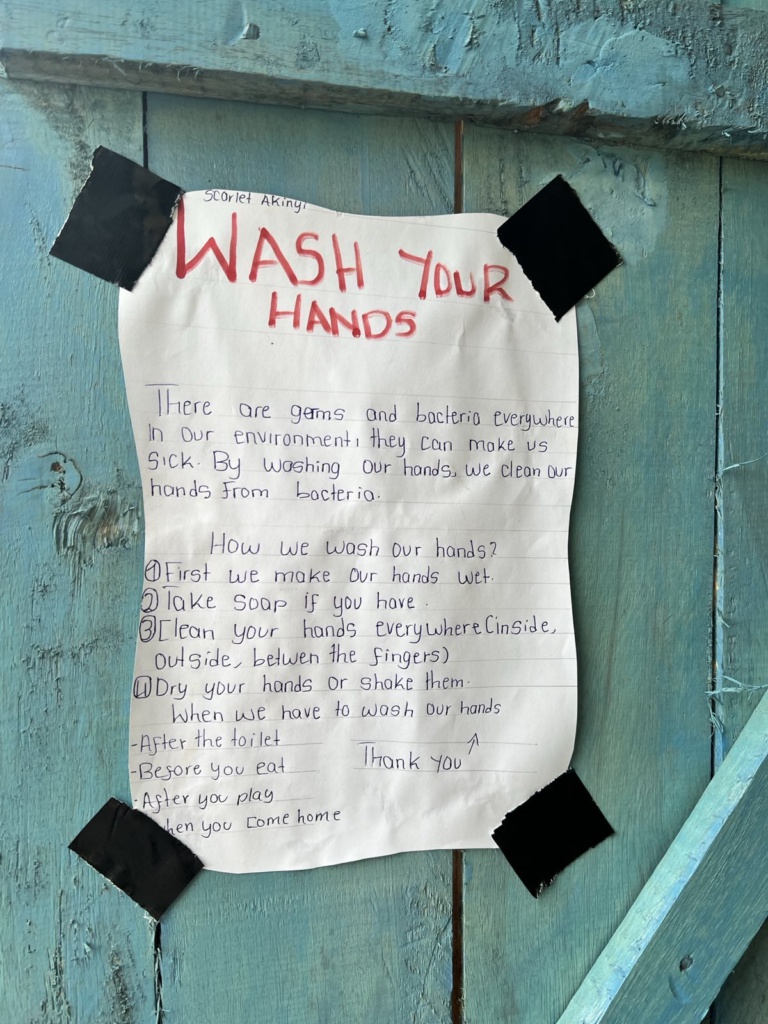 Scarlet Akinyi
WASH YOUR
HANDS
There are germs and bacteria everywhere
In our environment, they can make us
sick. By washing our hands, we clean our
hands from bacteria.
How we wash our hands?
① First we make our hands wet.
② Take soap if you have.
③ Clean your hands everywhere (inside,
outside, betwen the fingers)
④ Dry your hands or shake them.
When we have to wash our hands
-After the toilet
-Before you eat
-After you play
hen you come home
Thank you ↑